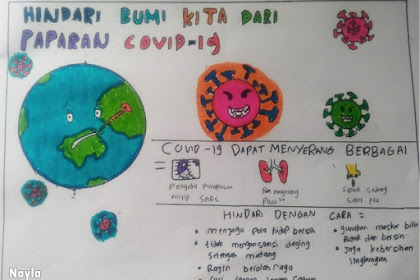 HINDARI BUMI KITA DARI
PAPARAN COVID-19
COVID-19 DAPAT MENYERANG BERBAGAI
=
Penyakit Pernapasan
mirip SARS
Paru
HINDARI DENGAN CARA =
• menjaga pola hidup bersih
• tidak mengonsumsi daging
setengah matang
• Rajin berolahraga
• Cuci tangan
• gunakan masker bila
Batuk dan bersin
• jaga kebersihan
lingkungan
Nayla